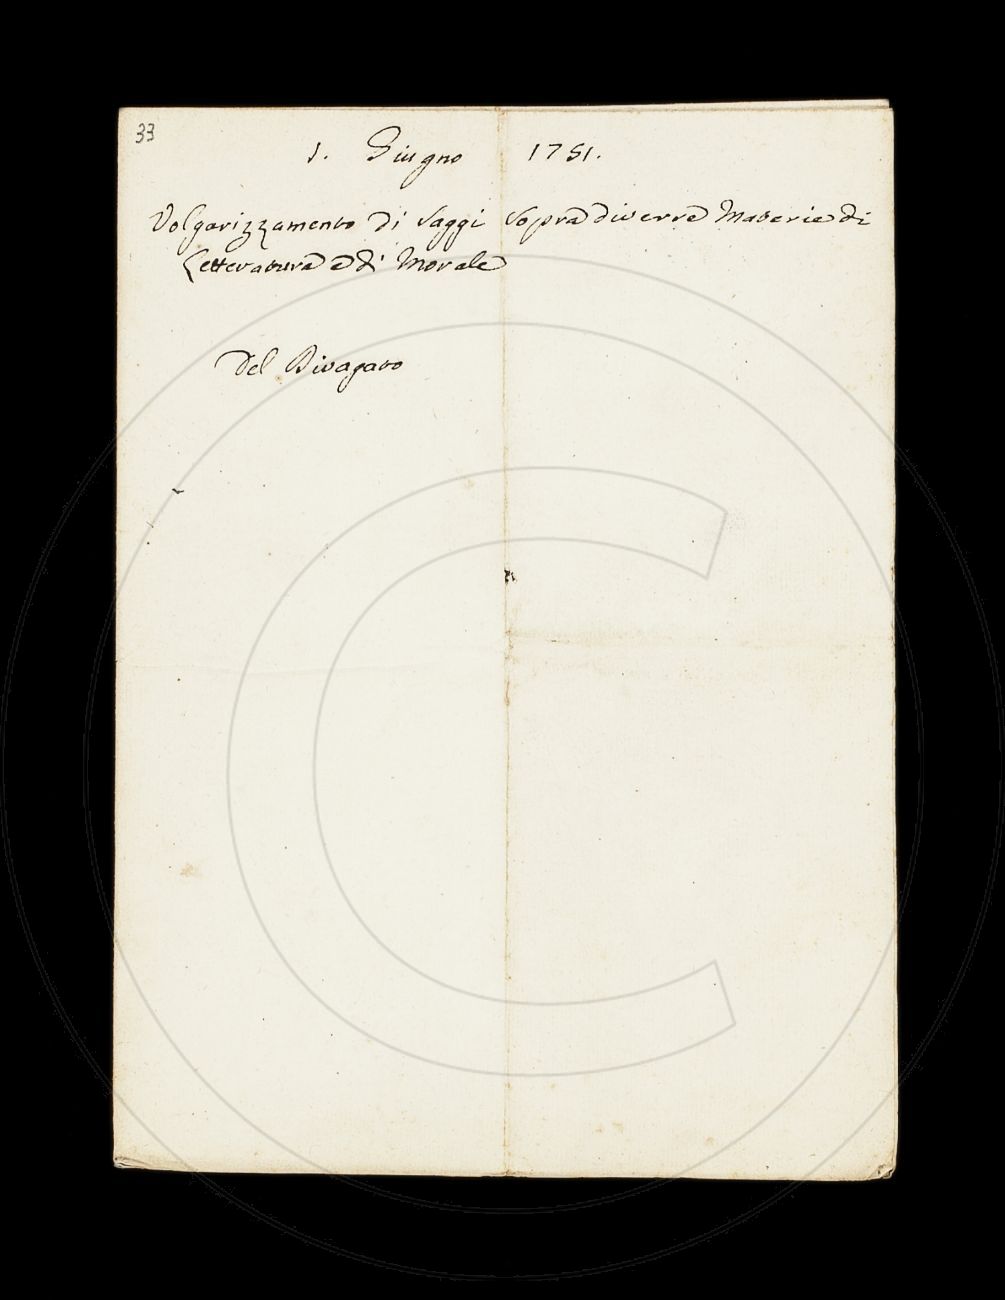 33
1. Giugno 1751.
Volgarizzamento di Saggi Sopra diverse Materie di
Letteratura e di Morale
Del Divagato